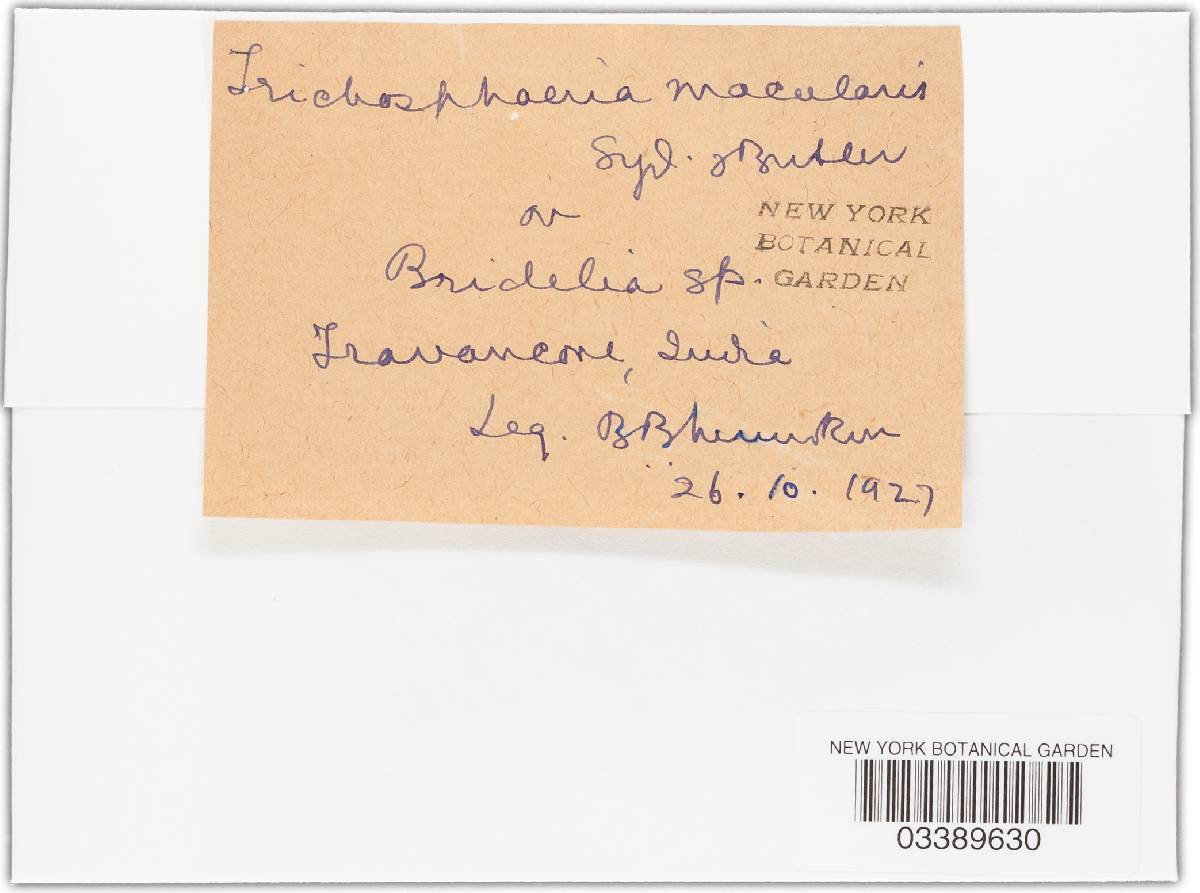 Trichosphaeria macularis
Syd. & Butler
on
Bridelia sp.
NEW YORK
BOTANICAL
GARDEN
Travancore, India
Leg.
26. 10. 1927
NEW YORK BOTANICAL GARDEN
03389630